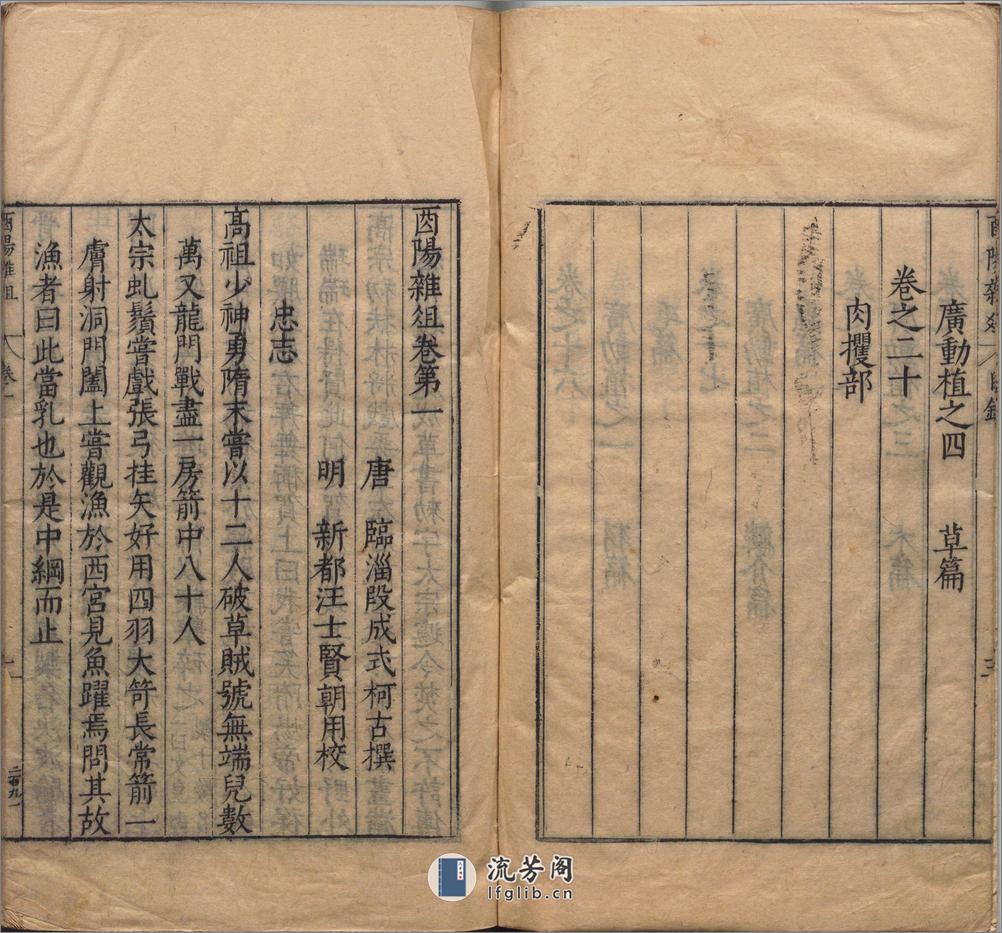 廣動植之四 草篇
卷之二十
肉攫部
酉陽雜俎卷第一
唐 臨淄段成式柯古撰
明 新都汪士賢朝用校
忠志
高祖少神勇隋末嘗以十二人破草賊號無端兒數
萬又龍門戰盡一房箭中八十人
太宗虬鬚嘗戲張弓挂矢好用四羽大笴長常箭一
膚射洞門闔上嘗觀漁於西宮見魚躍焉問其故
漁者曰此當乳也於是中綱而止
酉陽雜俎 卷一
流芳阁
lfglib.cn